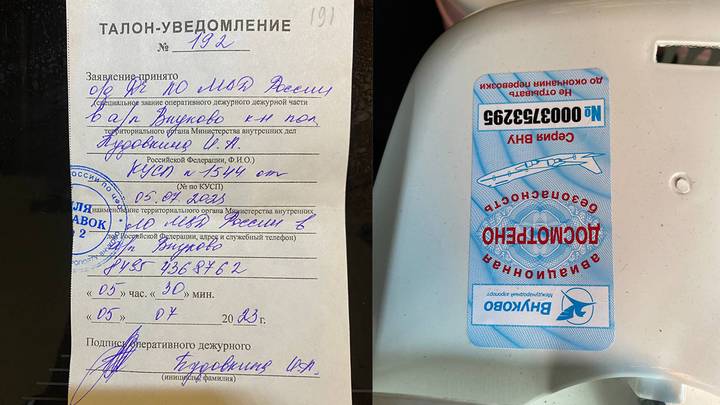 191
ТАЛОН-УВЕДОМЛЕНИЕ
№ 192
Заявление принято
о/д ДЧ ЛО МВД России
(специальное звание оперативного дежурного дежурной части
в а/п Внуково к-н пол
территориального органа Министерства внутренних дел
Пудовкина И.А.
Российской Федерации, Ф.И.О.)
КУСП № 1544 от
(№ по КУСП)
05.07.2023
наименование территориального органа Министерства внутренних
ЛО МВД России в
Российской Федерации, адрес и служебный телефон)
а/п Внуково
8495 4368762
« 05 » час. « 30 » мин.
« 05 » 07 2023 г.
Подпись оперативного дежурного
Пудовкина И.А.
(инициалы, фамилия)
Внуково
Международный аэропорт
авиационная
ДОСМОТРЕНО
безопасность
Серия ВНУ
№ 0003753295
Не отрывать
до окончания перевозки